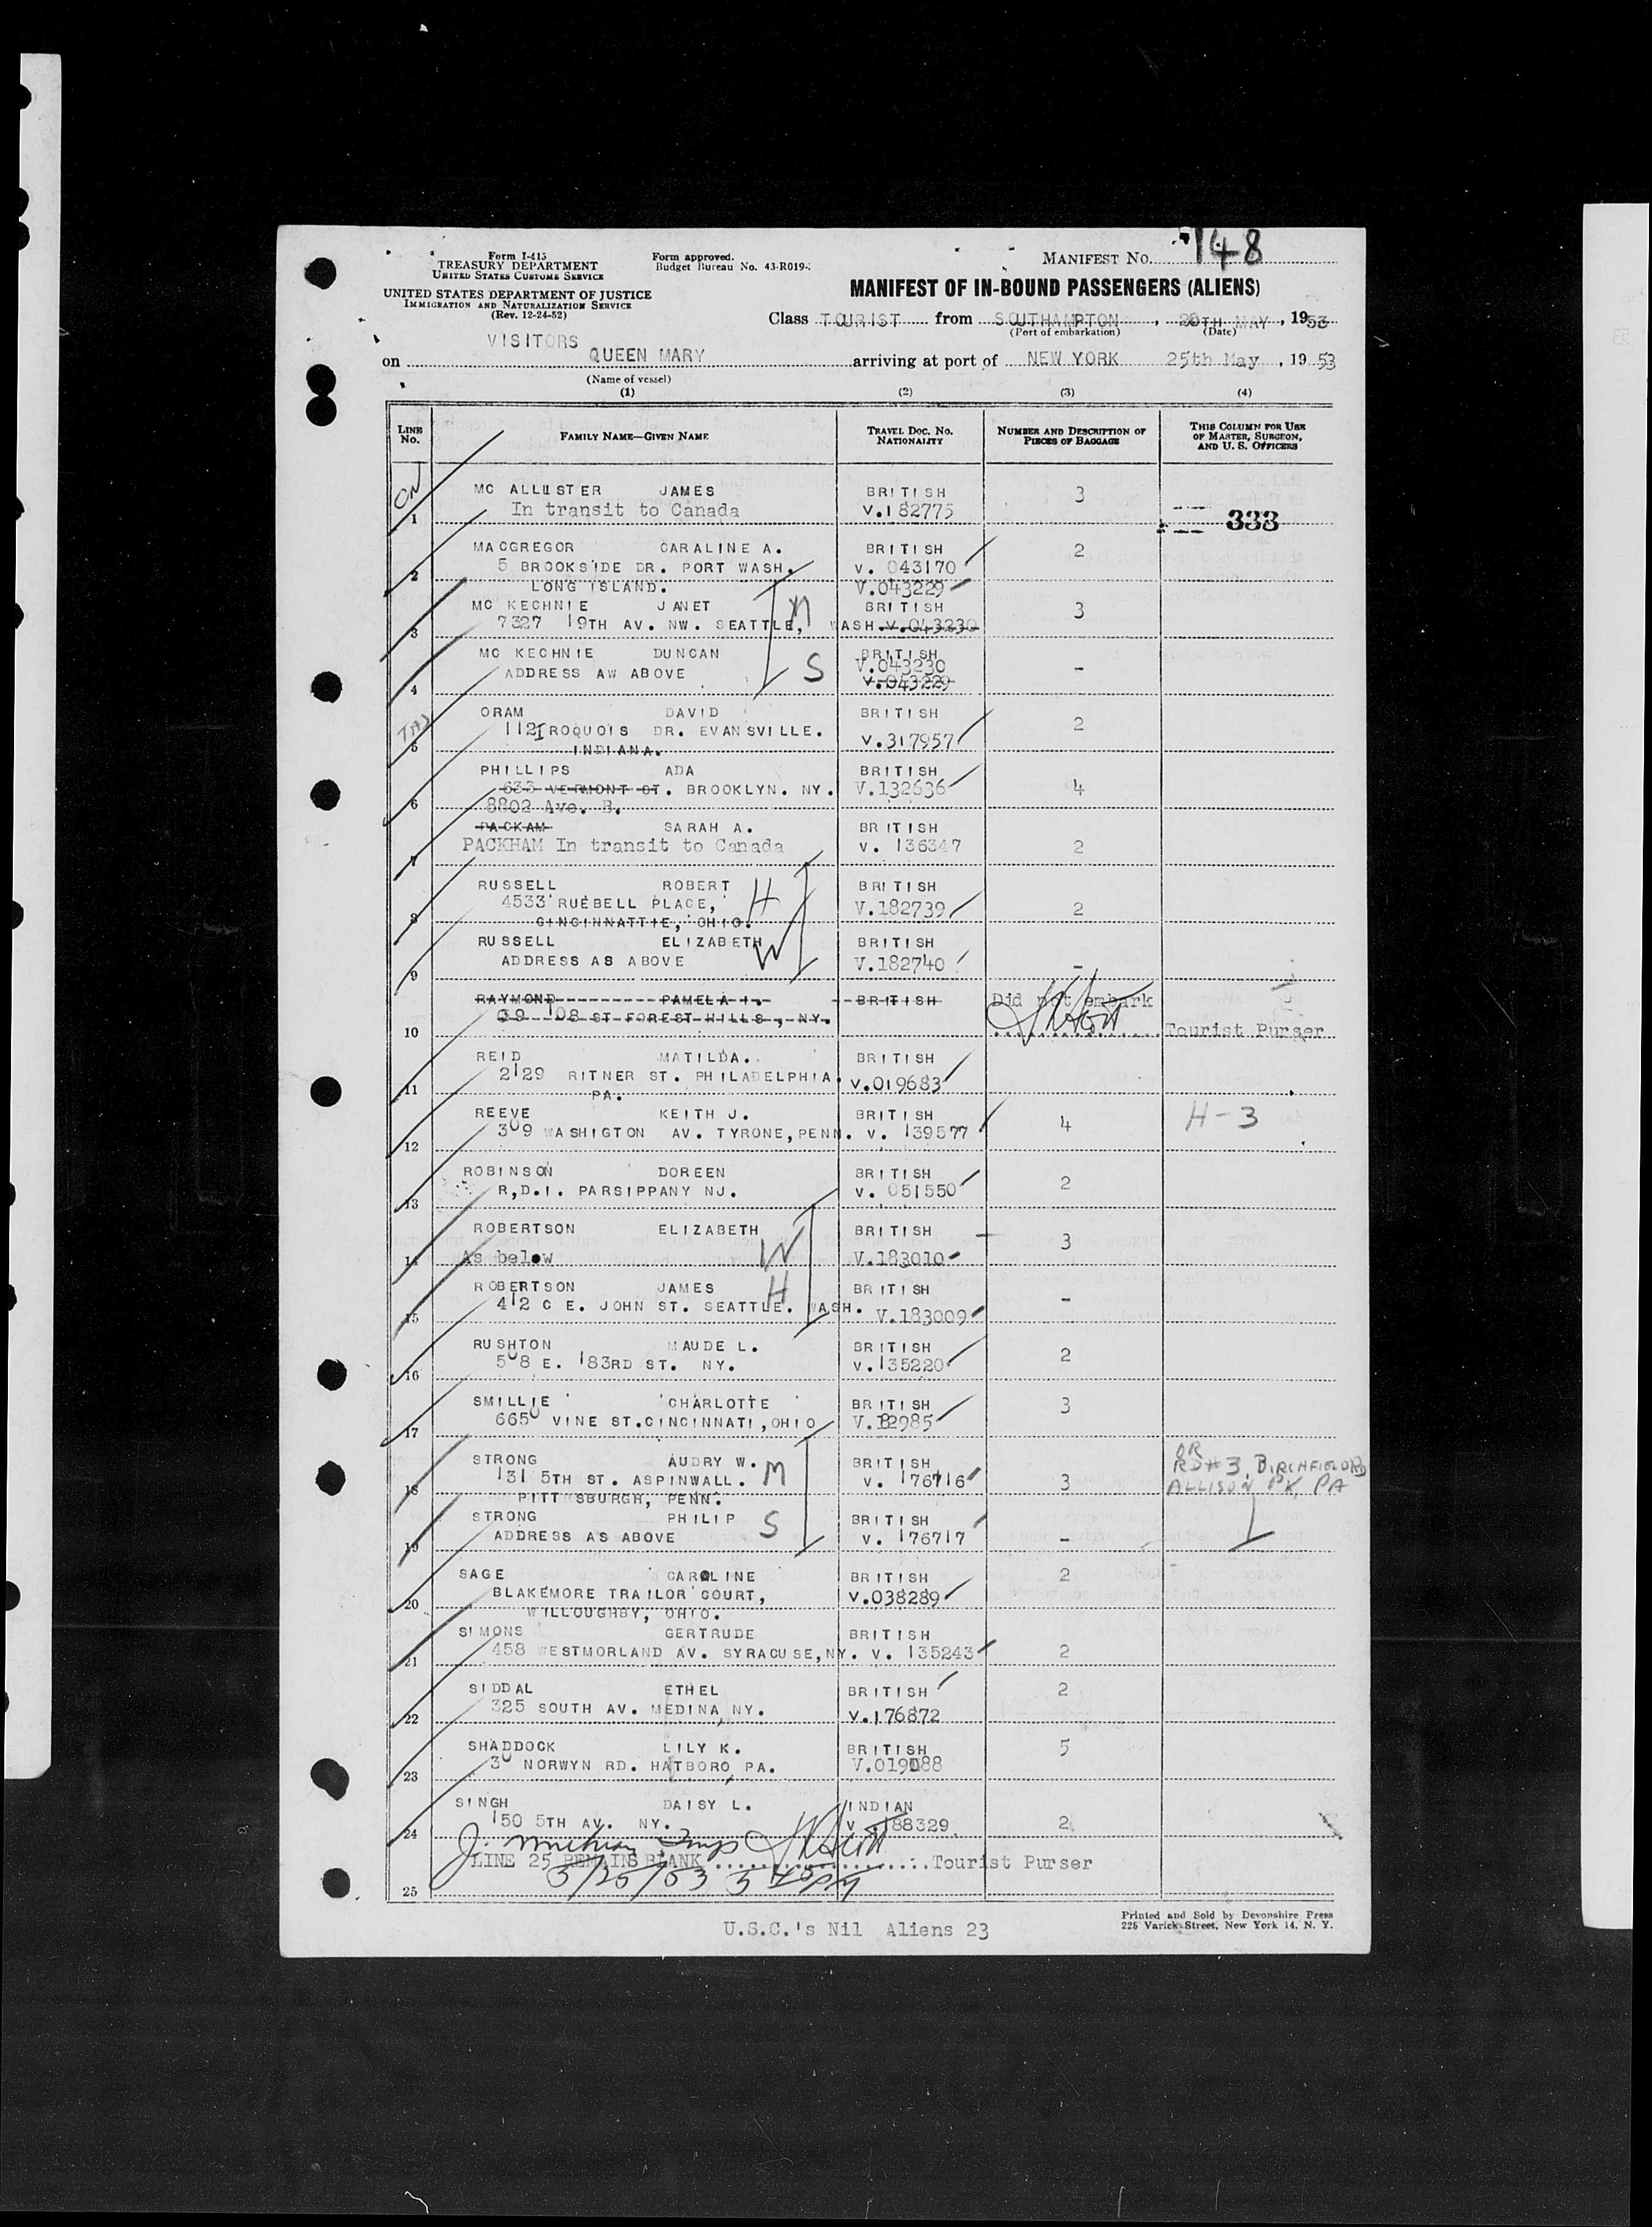 Form I-415
TREASURY DEPARTMENT
UNITED STATES CUSTOMS SERVICE
UNITED STATES DEPARTMENT OF JUSTICE
IMMIGRATION AND NATURALIZATION SERVICE
(Rev. 12-24-52)
Form approved.
Budget Bureau No. 43-R019-
MANIFEST No. 148
MANIFEST OF IN-BOUND PASSENGERS (ALIENS)
Class TOURIST from SOUTHAMPTON, 20TH MAY, 1953
(Port of embarkation) (Date)
VISITORS
on QUEEN MARY arriving at port of NEW YORK 25th May, 1953
(Name of vessel)
(1) (2) (3) (4)
LINE No. FAMILY NAME—GIVEN NAME TRAVEL DOC. No. NATIONALITY NUMBER AND DESCRIPTION OF PIECES OF BAGGAGE THIS COLUMN FOR USE OF MASTER, SURGEON, AND U. S. OFFICERS
CN
MC ALLISTER JAMES BRITISH 3
1 In transit to Canada V.182775 333
MACGREGOR CARALINE A. BRITISH 2
2 5 BROOKSIDE DR. PORT WASH. V. 043170
LONG ISLAND. V.043229
MC KECHNIE JANET M BRITISH 3
3 7327 19TH AV. NW. SEATTLE, WASH. V.043230
MC KECHNIE DUNCAN BRITISH
4 ADDRESS AW ABOVE S V.043230 -
V.043229
ORAM DAVID BRITISH 2
5 112 IROQUOIS DR. EVANSVILLE. V.317957
INDIANA.
PHILLIPS ADA BRITISH
6 633 VERMONT ST. BROOKLYN. NY. V.132636 4
8802 Ave. B.
PACKAM SARAH A. BRITISH
7 PACKHAM In transit to Canada V. 136347 2
RUSSELL ROBERT H BRITISH
8 4533 RUEBELL PLACE, V.182739 2
CINCINNATTIE, OHIO.
RUSSELL ELIZABETH W BRITISH
9 ADDRESS AS ABOVE V.182740 -
RAYMOND PAMELA I. BRITISH Did not embark
39 108 ST FOREST HILLS, NY.
10 Tourist Purser
REID MATILDA. BRITISH
11 2129 RITNER ST. PHILADELPHIA. V.019683
PA.
REEVE KEITH J. BRITISH 4 H-3
12 309 WASHIGTON AV. TYRONE, PENN. V. 139577
ROBINSON DOREEN BRITISH 2
13 R,D.1. PARSIPPANY NJ. V. 051550
ROBERTSON ELIZABETH W BRITISH 3
14 As below V.183010
ROBERTSON JAMES H BRITISH -
15 412 C E. JOHN ST. SEATTLE. WASH. V.183009
RUSHTON MAUDE L. BRITISH 2
16 508 E. 183RD ST. NY. V.135220
SMILLIE CHARLOTTE BRITISH 3
17 6650 VINE ST.CINCINNATI,OHIO
STRONG AUDRY W. M BRITISH OR
18 131 5TH ST. ASPINWALL. V. 176716 3 RD#3, BIRCHFIELD RD
PITTSBURGH, PENN. ALLISON PK, PA
STRONG PHILIP S BRITISH
19 ADDRESS AS ABOVE V. 176717 -
SAGE CAROLINE BRITISH 2
20 BLAKEMORE TRAILOR COURT, V.038289
WILLOUGHBY, OHIO.
SIMONS GERTRUDE BRITISH
21 458 WESTMORLAND AV. SYRACUSE,NY. V. 135243 2
SIDDAL ETHEL BRITISH 2
22 325 SOUTH AV. MEDINA, NY. V.176872
SHADDOCK LILY K. BRITISH 5
23 30 NORWYN RD. HATBORO, PA.
SINGH DAISY L. INDIAN
24 150 5TH AV. NY. V. 188329 2
LINE 25 REMAINS BLANK Tourist Purser
5/25/53
25
U.S.C.'s Nil Aliens 23
Printed and Sold by Devonshire Press
225 Varick Street, New York 14, N. Y.